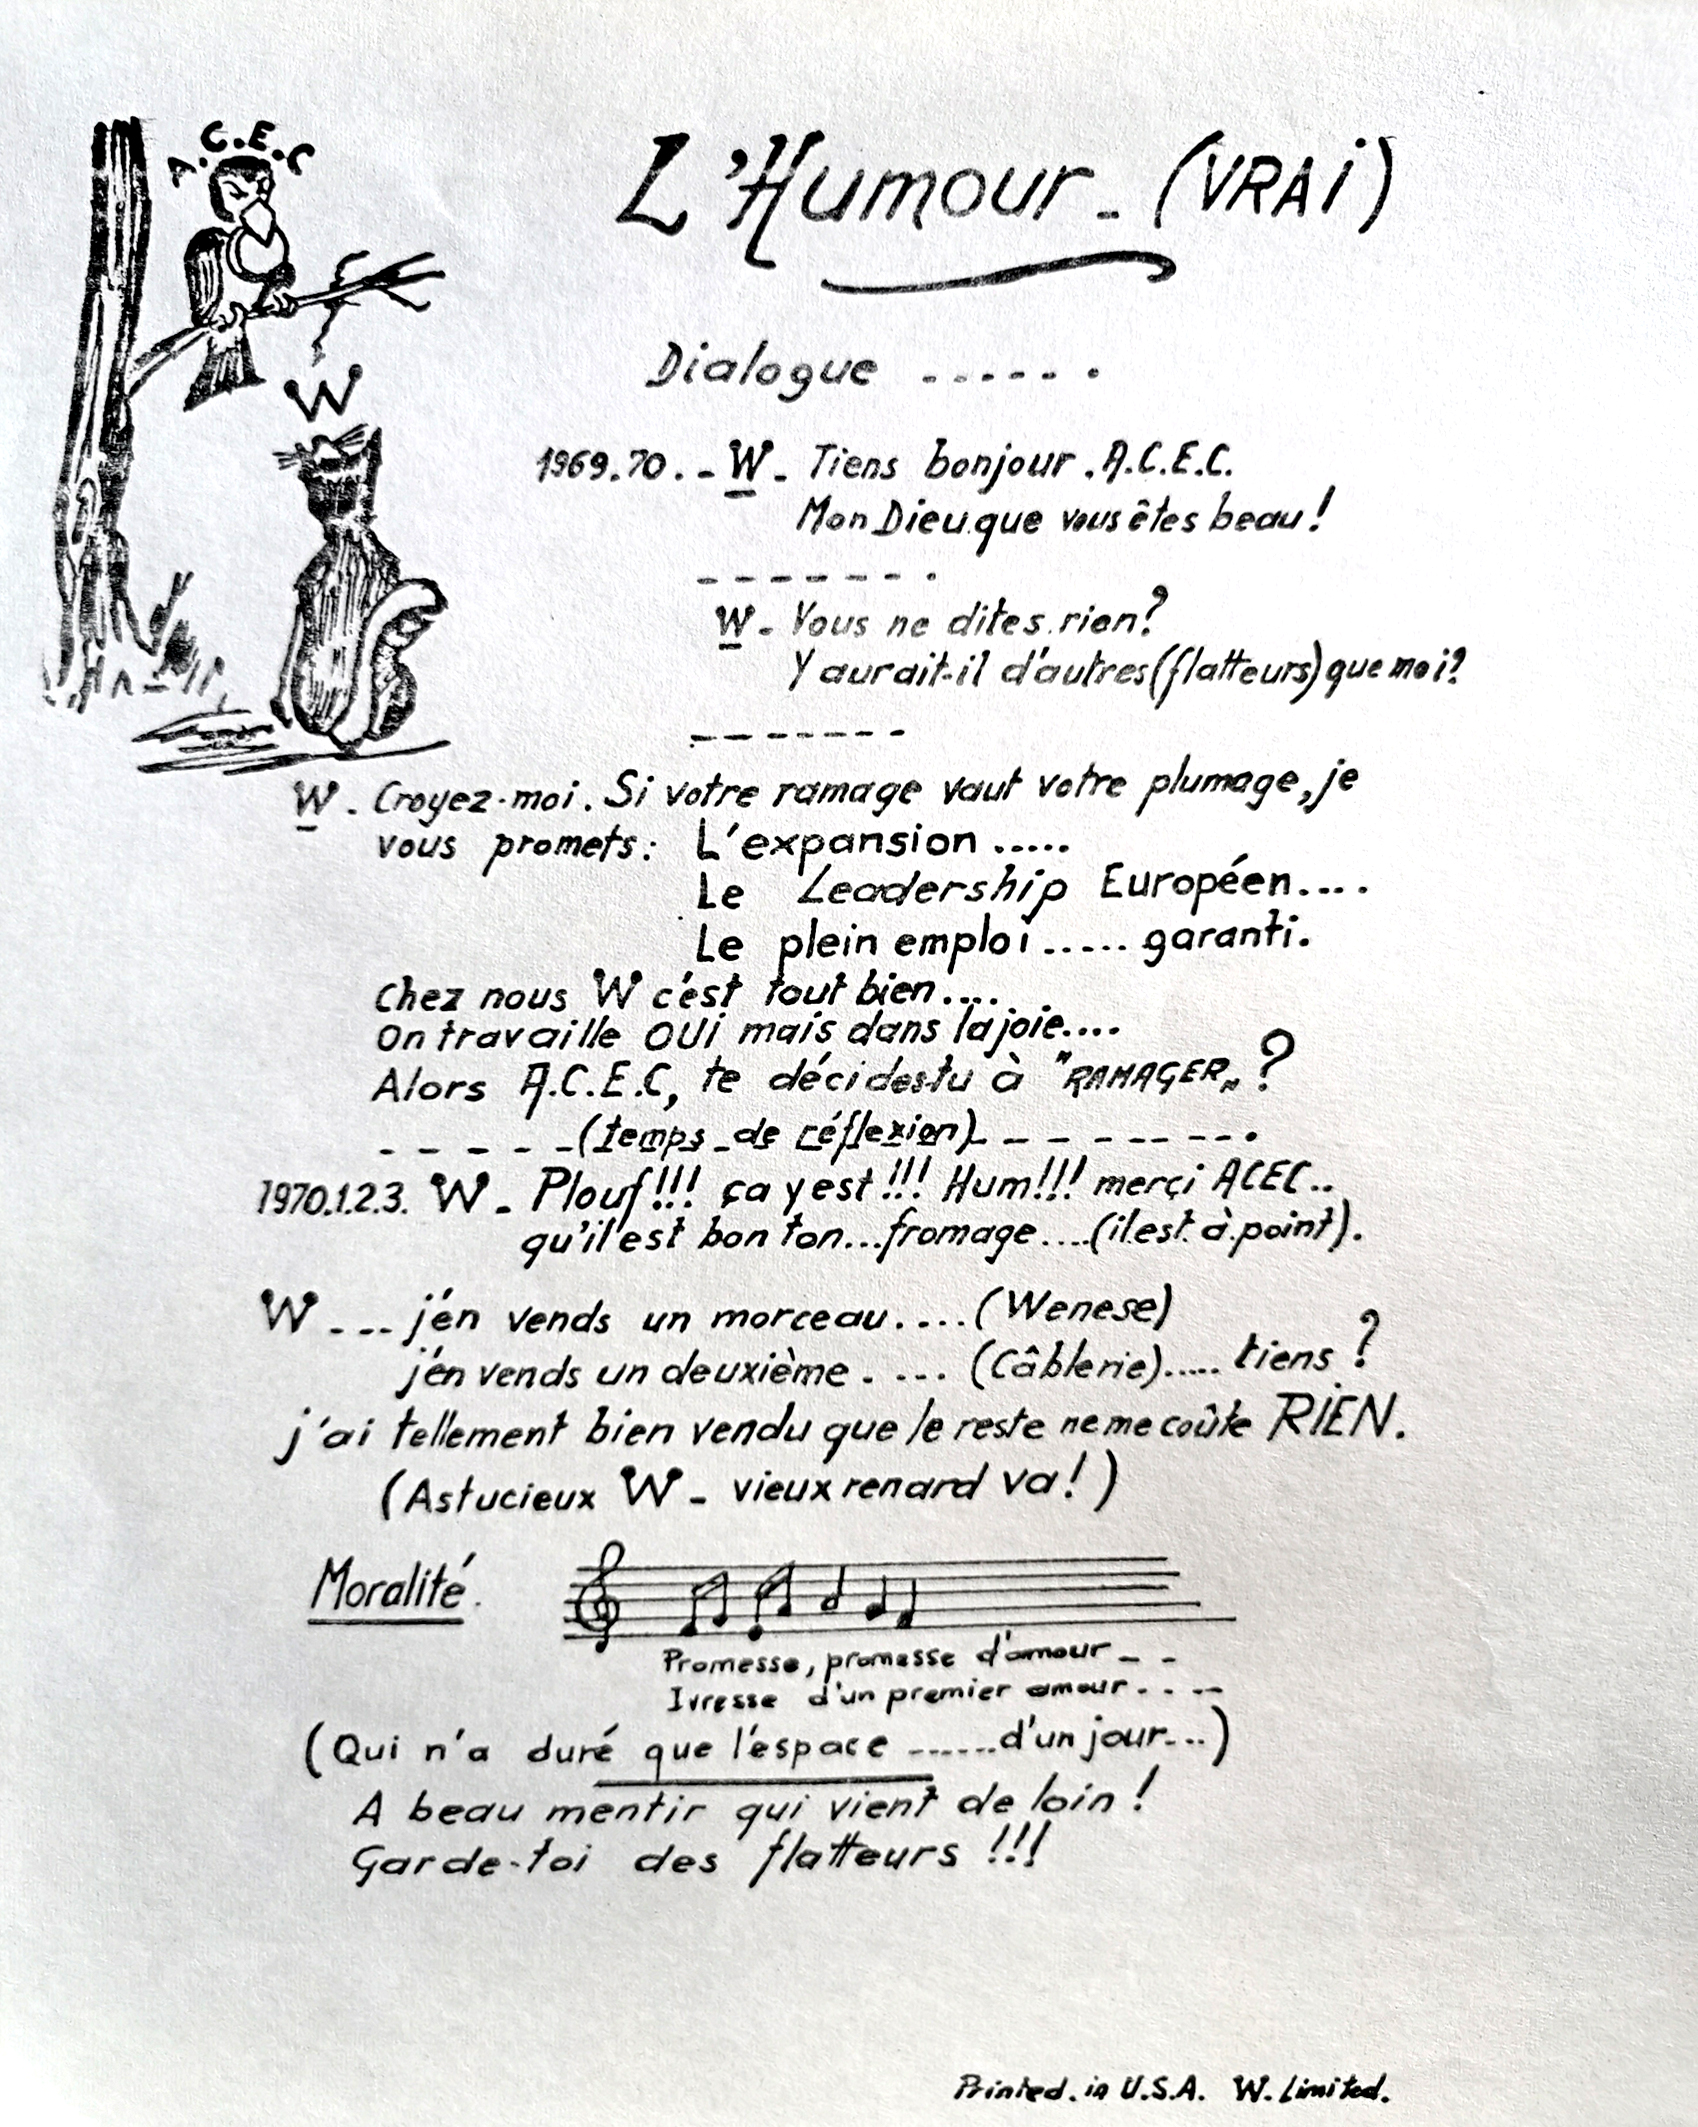 A.C.E.C
L'Humour - (VRAi)
W
Dialogue ------.
1969.70. - W - Tiens bonjour . A.C.E.C.
Mon Dieu.que vous êtes beau!
-------.
W - Vous ne dites.rien?
Y aurait-il d'autres(flatteurs)que moi?
-------
W . Croyez-moi. Si votre ramage vaut votre plumage, je
vous promets: L'expansion .....
Le Leadership Européen....
Le plein emploi ..... garanti.
Chez nous W c'est tout bien....
On travaille OUi mais dans la joie....
Alors A.C.E.C, te décides-tu à "RAMAGER" ?
- - - - - -(temps-de réflexion)- - - - -- ---.
1970.1.2.3. W - Plouf!!! ça y est!!! Hum!!! merçi ACEC..
qu'il est bon ton...fromage....(il.est.à.point).
W ---- j'en vends un morceau....(Wenese)
j'en vends un deuxième . ... (Câblerie)..... tiens ?
j'ai tellement bien vendu que le reste ne me coûte RiEN.
(Astucieux W - vieux renard va!)
Moralité.
Promesse, promesse d'amour - -
Ivresse d'un premier amour....
(Qui n'a duré que l'espace ......d'un jour...)
A beau mentir qui vient de loin!
Garde-toi des flatteurs !!!
Printed. in U.S.A. W. Limited.